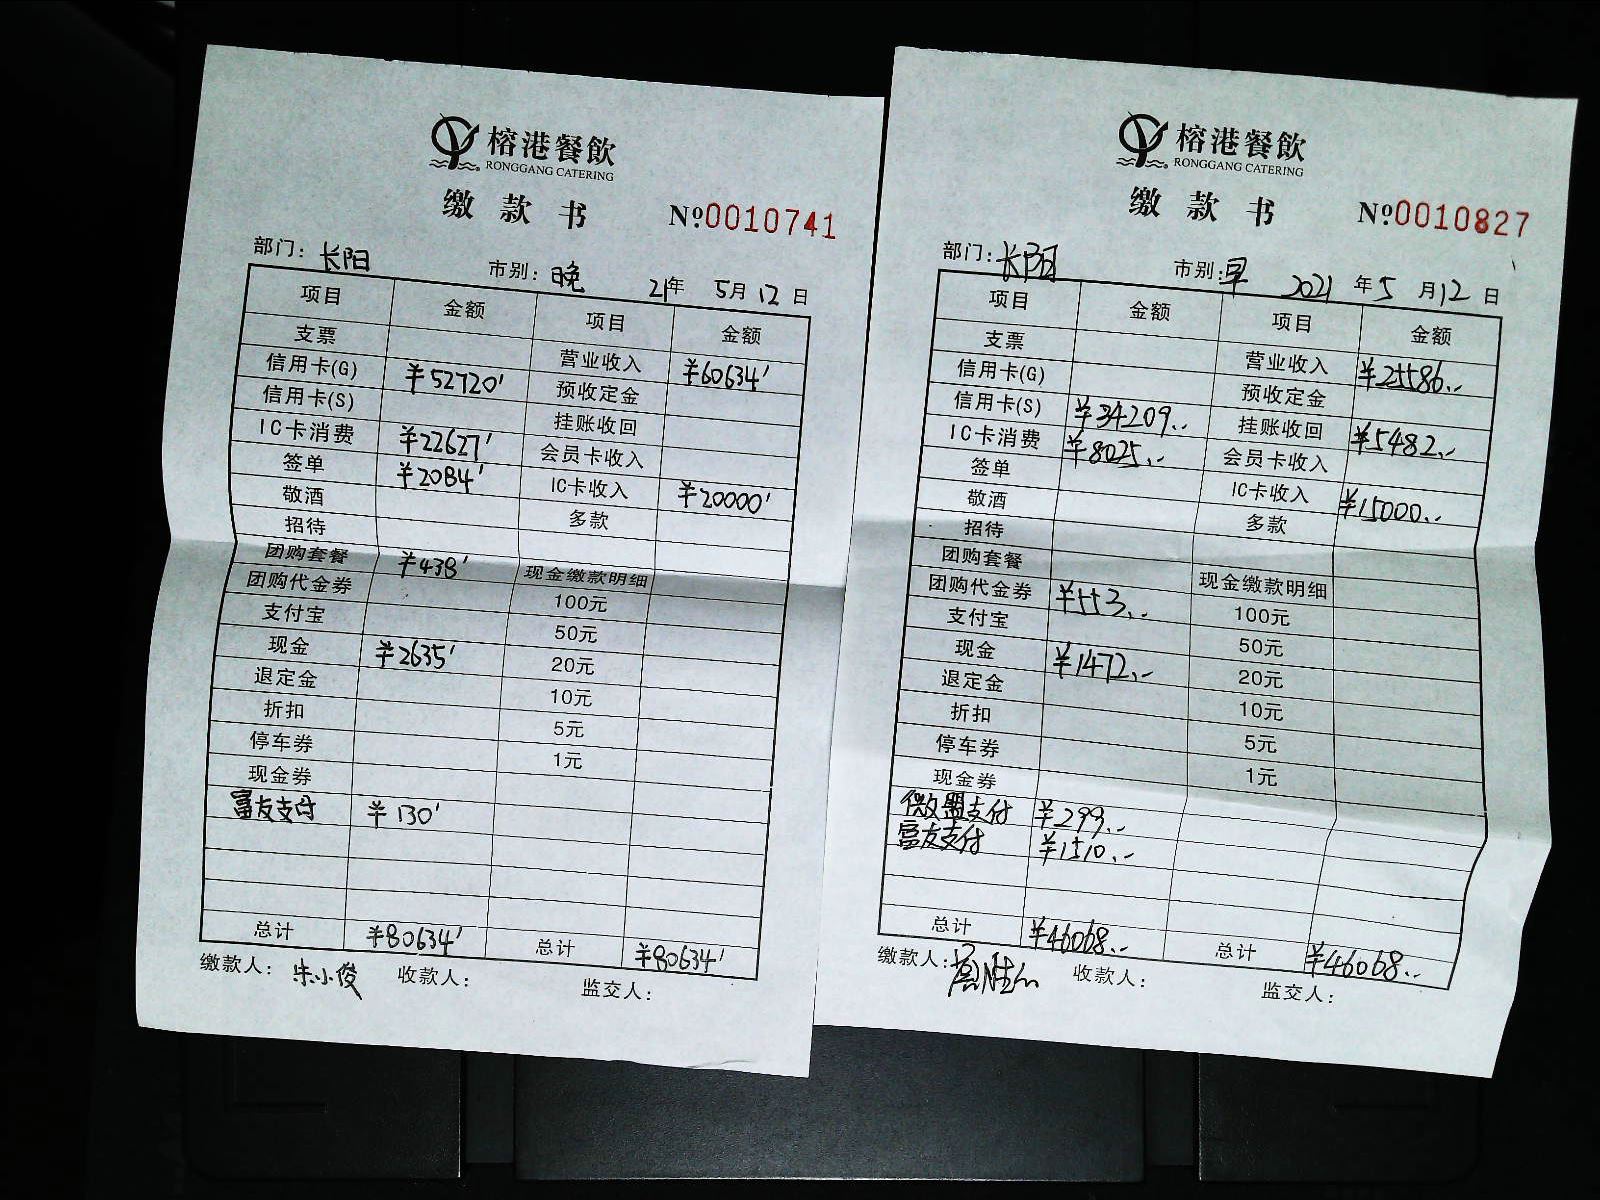 榕港餐飲
RONGGANG CATERING
缴款书 №0010741
部门: 长阳 市别: 晚 21年 5月 12日
项目 金额 项目 金额
支票 营业收入 ¥60634'
信用卡(G) ¥52720' 预收定金
信用卡(S) 挂账收回
IC卡消费 ¥22627' 会员卡收入
签单 ¥2084' IC卡收入 ¥20000'
敬酒 多款
招待
团购套餐 ¥438' 现金缴款明细
团购代金券 100元
支付宝 50元
现金 ¥2635' 20元
退定金 10元
折扣 5元
停车券 1元
现金券
富友支付 ¥130'
总计 ¥80634' 总计 ¥80634'
缴款人: 朱小俊 收款人: 监交人:
榕港餐飲
RONGGANG CATERING
缴款书 №0010827
部门: 长阳 市别: 早 2021年 5月 12日
项目 金额 项目 金额
支票 营业收入 ¥25586.-
信用卡(G) 预收定金
信用卡(S) ¥34209.- 挂账收回 ¥5482.-
IC卡消费 ¥8025.- 会员卡收入
签单 IC卡收入 ¥15000.-
敬酒 多款
招待
团购套餐 现金缴款明细
团购代金券 ¥553.- 100元
支付宝 50元
现金 ¥1472.- 20元
退定金 10元
折扣 5元
停车券 1元
现金券
微盟支付 ¥299.-
富友支付 ¥1510.-
总计 ¥46068.- 总计 ¥46068.-
缴款人: 收款人: 监交人: